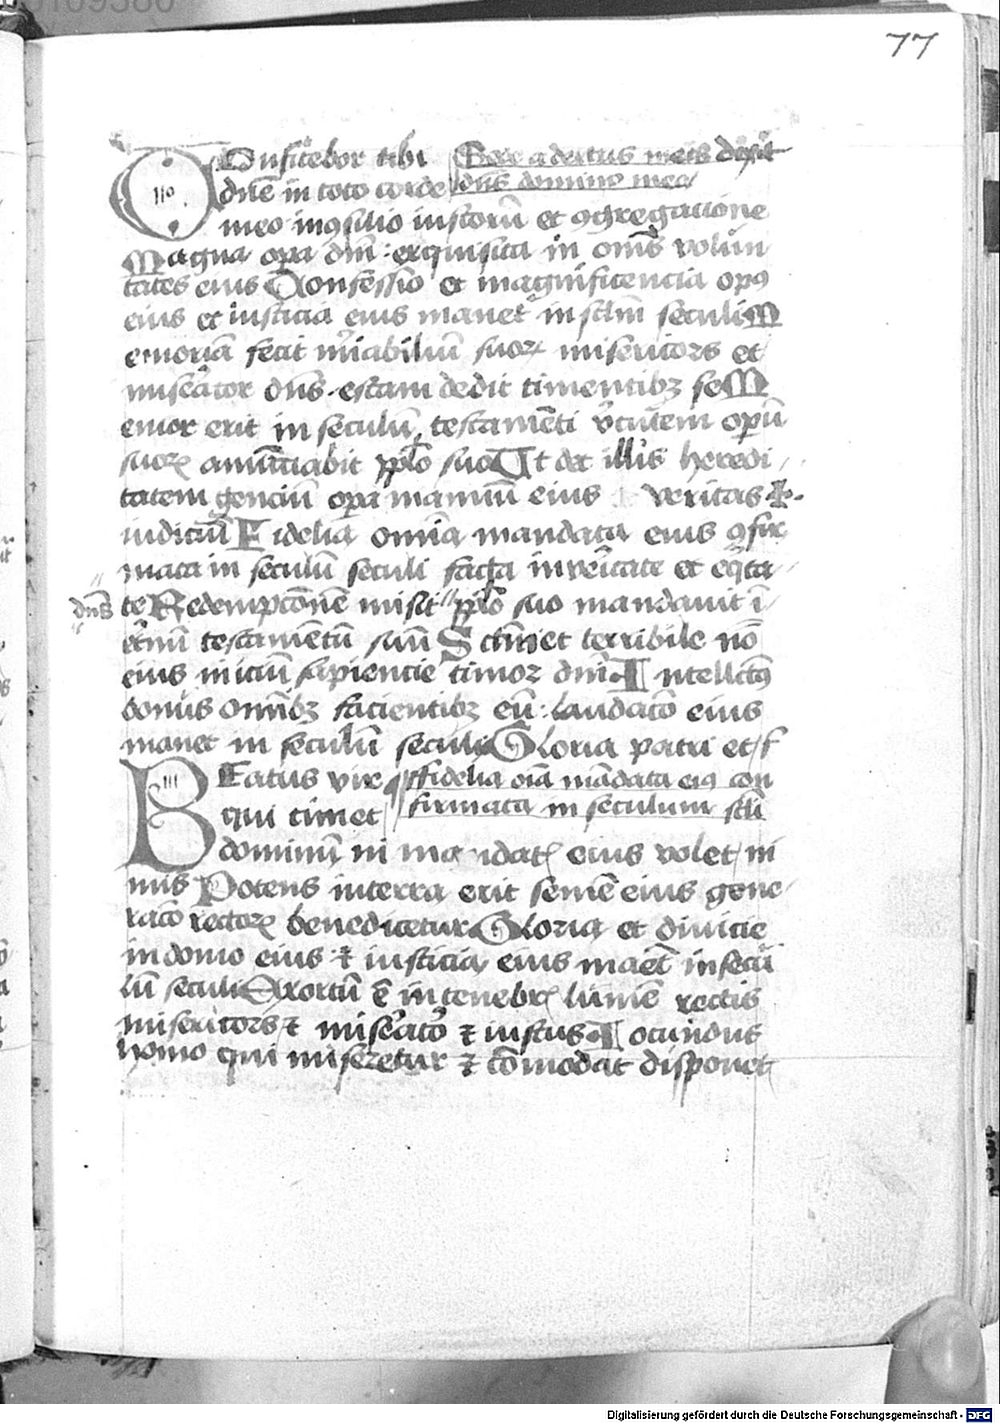 77
COnfitebor tibi Sede a dextris meis dixit
dn̄e in toto corde dn̄s domino meo
meo in ꝯsilio iustorū et ꝯgregacione
Magna opa dn̄i exquisita in om̄s volun
tates eius Confessio et magnificencia opꝰ
eius et iusticia eius manet in sclm̄ seculi M
emoriā fecit mirabiliū suoꝝ misericors et
miserator dn̄s escam dedit timentibꝫ se M
emor erit in seculū testamēti virtutem operū
suoꝝ anūnciabit pplo suo Vt det illis heredi
tatem genciū opera manuū eius veritas ⁊
iudiciū Fidelia omnia mandata eius ꝯfir
mata in seculū seculi facta in veritate et eqta
dn̄s te Redempcōnem misit pplo suo mandavit ī
eternū testamētū suū Sctm̄ et terribile nō
eius iniciū sapiencie timor dn̄i Intellectꝰ
bonus omībꝫ facientibꝫ eū laudacō eius
manet in seculū seculi Gloria patri et f
III BEatus vir ffidelia oīa mādata eiꝰ con
qui timet firmata in seculum scli
dominū in mandatꝭ eius volet ni
mis Potens in terra erit semē eius gene
racō rectoꝝ benedicetur Gloria et divicie
in domo eius ⁊ iusticia eius manet in secu
lū seculi Exortū ē in tenebrꝭ lumē rectis
misericors ⁊ miserator ⁊ iustus Iocundus
homo qui miseretur ⁊ cōmodat disponet
Digitalisierung gefördert durch die Deutsche Forschungsgemeinschaft - DFG